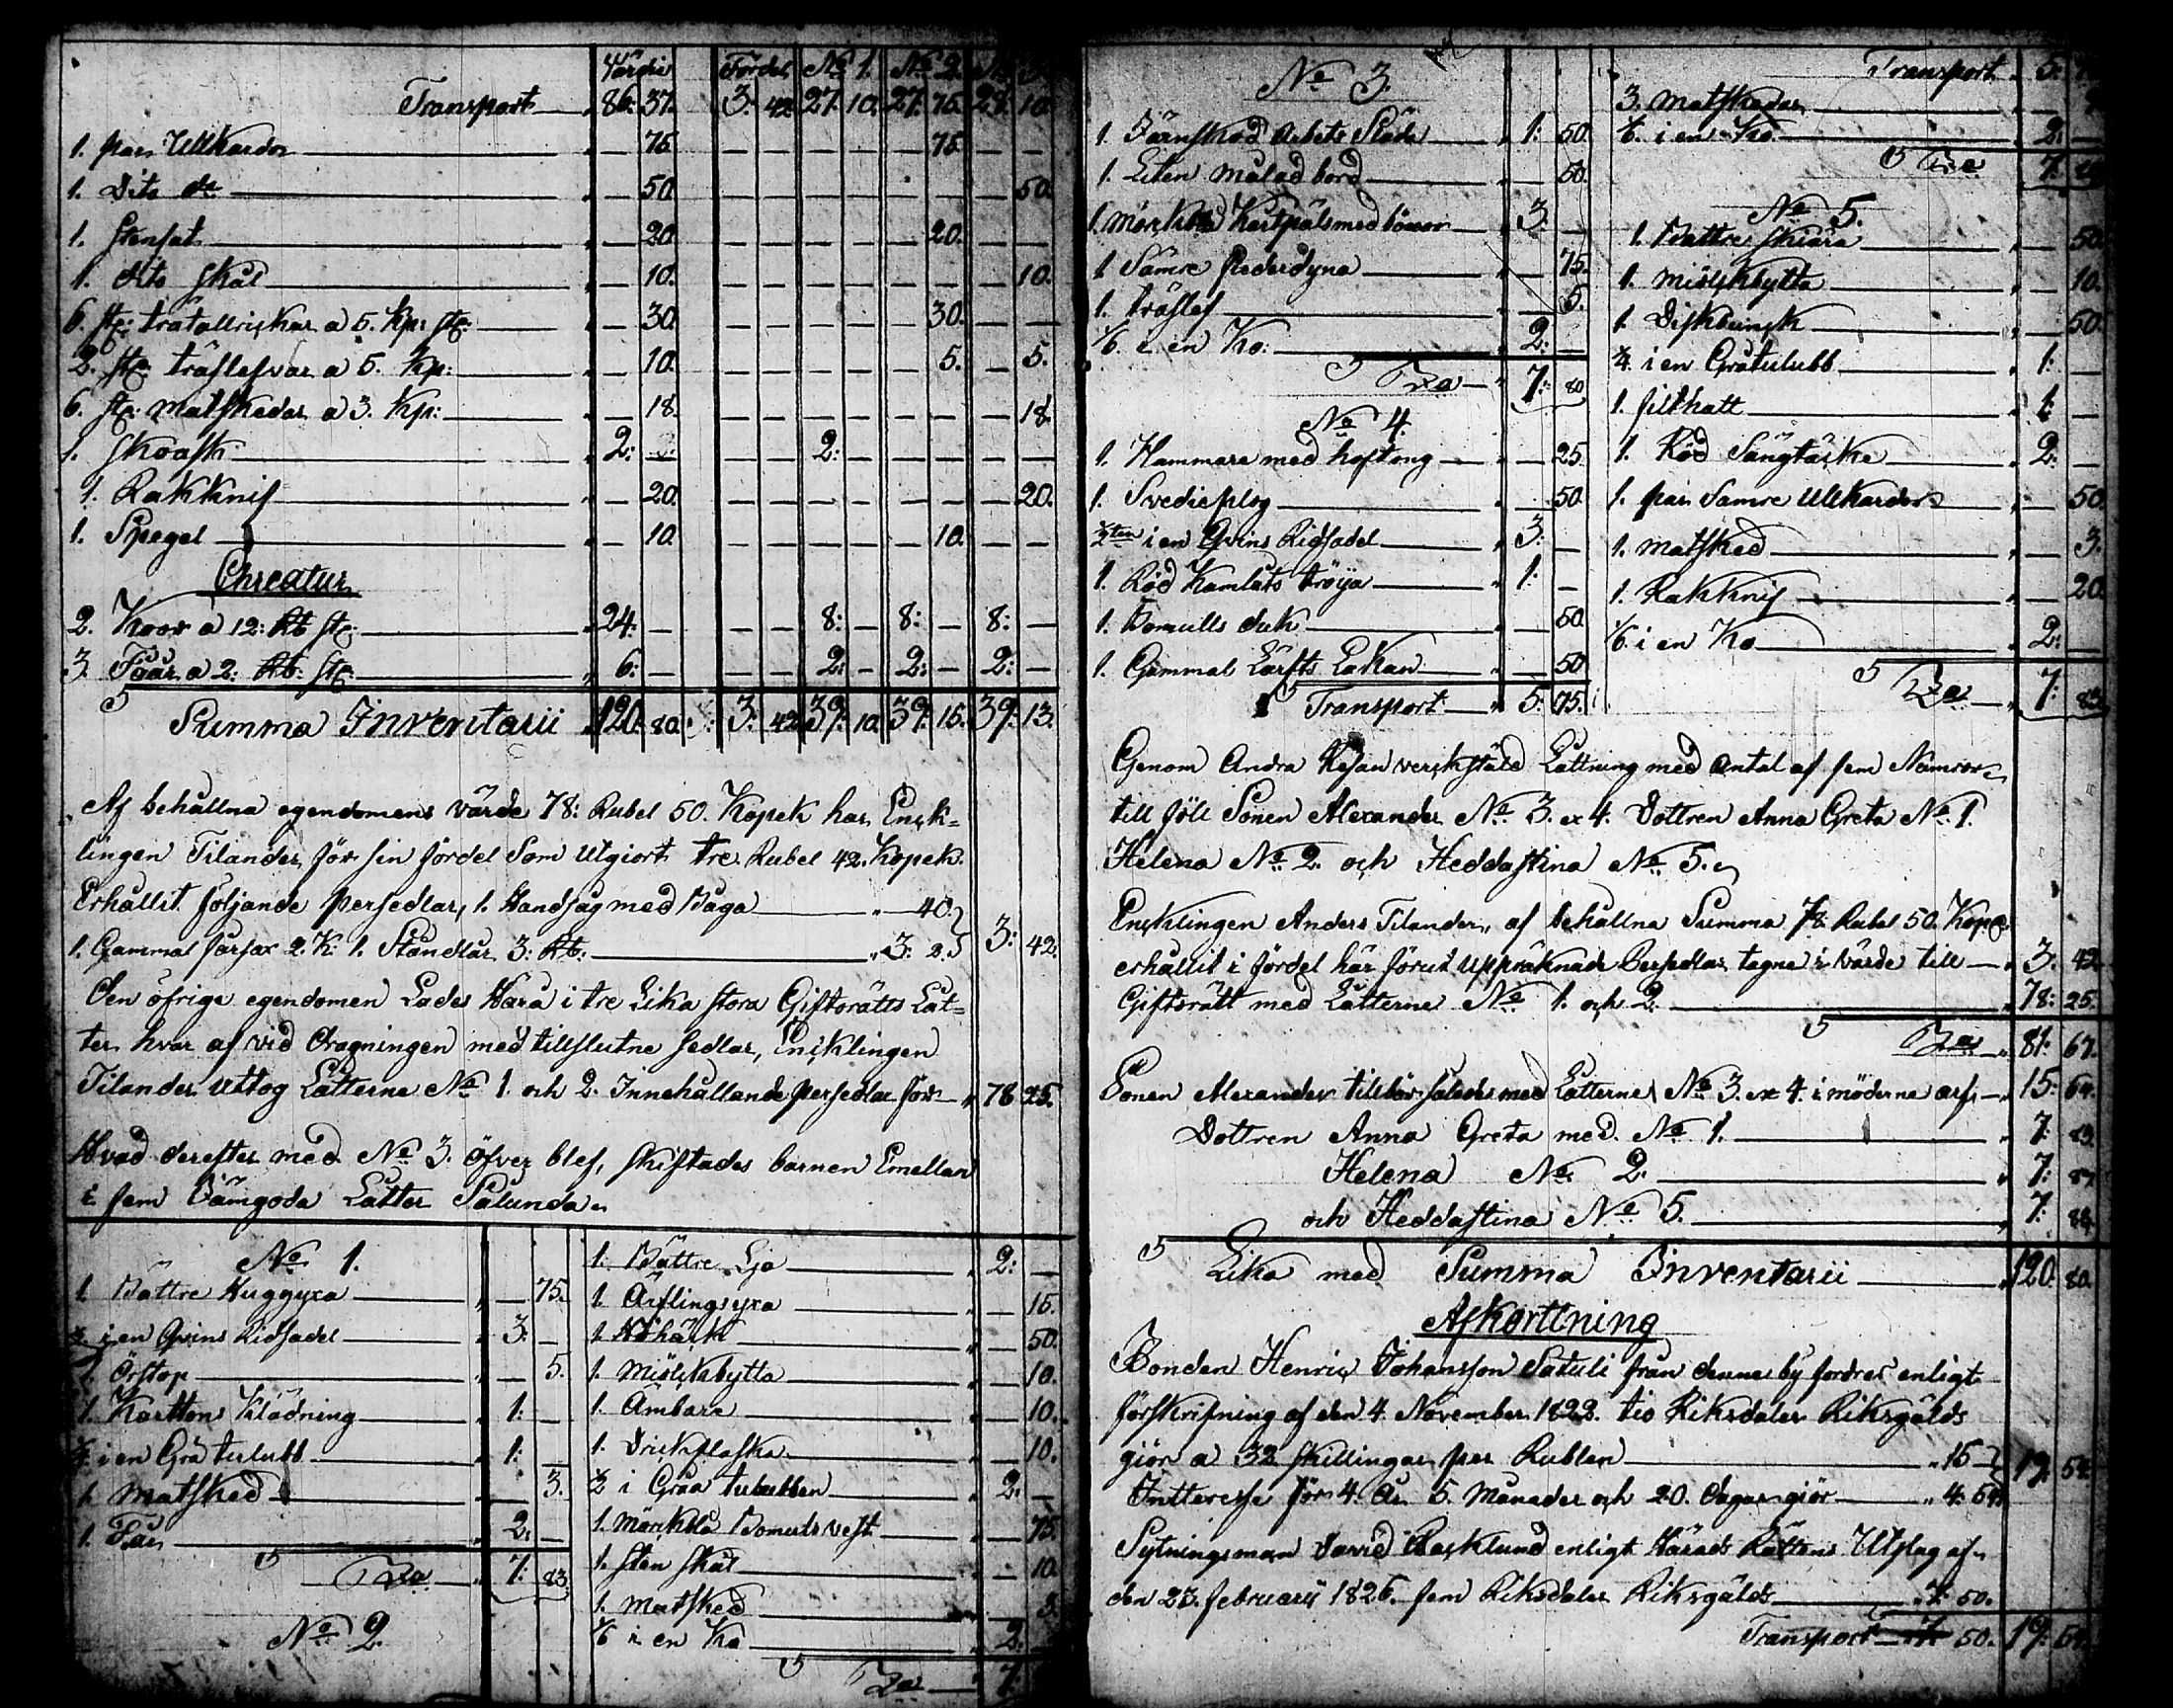 Värdie Fördel No 1. No 2.
Transport 86: 37. 3: 42 27: 10. 27: 75. 28: 10.
1. par Ullkardor — 75. 75.
1. Dito do — 50. 50.
1. Stenfat — 20. 20.
1. dito skål — 10. 10.
6. st: trätallrickar a 5. Kp: st: — 30. 30.
2. st: träslefvar a 5. Kp: — 10. 5. 5.
6. st: matskedar a 3. Kp: — 18. 18.
1. Skoask 2: — 2:
1. Rakknif — 20. 20.
1. Spegel — 10. 10.
Chreatur
2. Koor a 12: Rb st: 24: — 8: — 8: — 8: —
3. Fåår a 2: Rb: st: 6: — 2: — 2: — 2: —
Summa Inventarii 120: 80. 3: 42 39: 10. 39: 15. 39: 13.
Af behållna egendomens värde 78: Rubel 50. Kopek har Enck=
lingen Tilander, för sin fördel Som utgiort tre Rubel 42. Kopek.
Erhållit följande persedlar, 1. Handsåg med Båga — 40.
1. Gammal farfar 2. K. 1. Ståndlår 3: Rb. 3: 2. 3: 42.
Den öfriga egendomen Lades Hära i tre Lika stora Giftorätts Låt=
ter hvar af vid dragningen med tillslutne sedlar, Encklingen
Tilander uttog Lätterne No 1. och 2. Innehållande persedlar för 78 25.
Hvad derefter med No 3. öfver blef, skiftades barnen Emellan
i fem Jämgoda Låtter Sålunda
No 1.
1. Bättre Huggyxa — 75.
i en Qvins Ridsadel 3: —
1. Örstop — 5.
1. Karttons Klädning 1: —
¼ i en Grå tulubb 1: —
1. Matsked — 3.
1. Får 2: —
Sa 7: 83.
No 2.
1. Bättre Lja 2: —
1. Arflingsyxa — 15.
1. Höhäck — 50.
1. Miölckbytta — 10.
1. Ämbare — 10.
1. Drickflaska — 10.
½ i Gråa tulubben 2: —
1. Mörkblå Bomuls vest — 75.
1. Sten skål — 10.
1. Matsked — 3.
⅙ i en Ko 2: —
Sa 7:
No 3.
1. Järnskod Arbets Släde 1: 50.
1. Liten målad bord — 50.
1. Mörkblå Kastpäls med bömor 3: —
1. Sämre fjederdyna — 75.
1. träslef — 5.
⅙ i en Ko: 2: —
Sa 7: 80
No 4.
1. Hammare med hoftong — 25.
1. Svedieplog — 50.
½ten i en Qvins Ridsadel 3: —
1. Röd Kamlåts tröija 1: —
1. Bomulls duk — 50.
1. Gammal Lärfts Lakan — 50
Transport 5: 75.
Transport 5: 75
3. Matskedar — 9
⅙ i en Ko 2: —
Sa 7: 84
No 5.
1. Bättre skiära — 50.
1. Miölckbytta — 10.
1. Diskbunck — 50.
¼ i en Gråtulubb 1: —
1. filthatt 1: —
1. Röd Sängtäcke 2: —
1. par Sämre Ullkardor — 50.
1. matsked — 3.
1. Rakknif — 20.
⅙ i en Ko 2: —
Sa 7: 83.
Genom Andra Resan verckstäld Lättning med Antal af fem Nummror
till föll Sonen Alexander No 3. et 4. Dottren Anna Greta No 1.
Helena No 2. och Heddastina No 5.
Encklingen Anders Tilander, af behållna Summa 78. Rubel 50. Kopec
erhållit i fördel här förut uppräknade Persedlar tagne i värde till 3: 42
Giftorätt med Låtterne No 1. och 2. 78: 25.
Sa 81: 67.
Sonen Alexander tillhör således med Lätterne No 3. et 4. i möderne arf 15: 64.
Dottren Anna Greta med No 1. 7: 83.
Helena No 2. 7: 83.
och Heddastina No 5. 7: 83.
Lika med Summa Inventarii 120. 80.
Afkorttning
Bonden Henric Johansson Satuli från denne by fordrar enligt
förskrifning af den 4. November 1822. tio Riksdaler Riksgälds
giör a 32 skillingar per Rublen 15 — 19: 54.
Intteresse för 4. År 5. Månader och 20. dagar giör 4: 54
Sytningsman David Backlund enligt Härads Rättens Utslag af
den 23. februarij 1826. fem Riksdaler Riksgälds 7: 50.
Transport 7: 50. 19: 54.